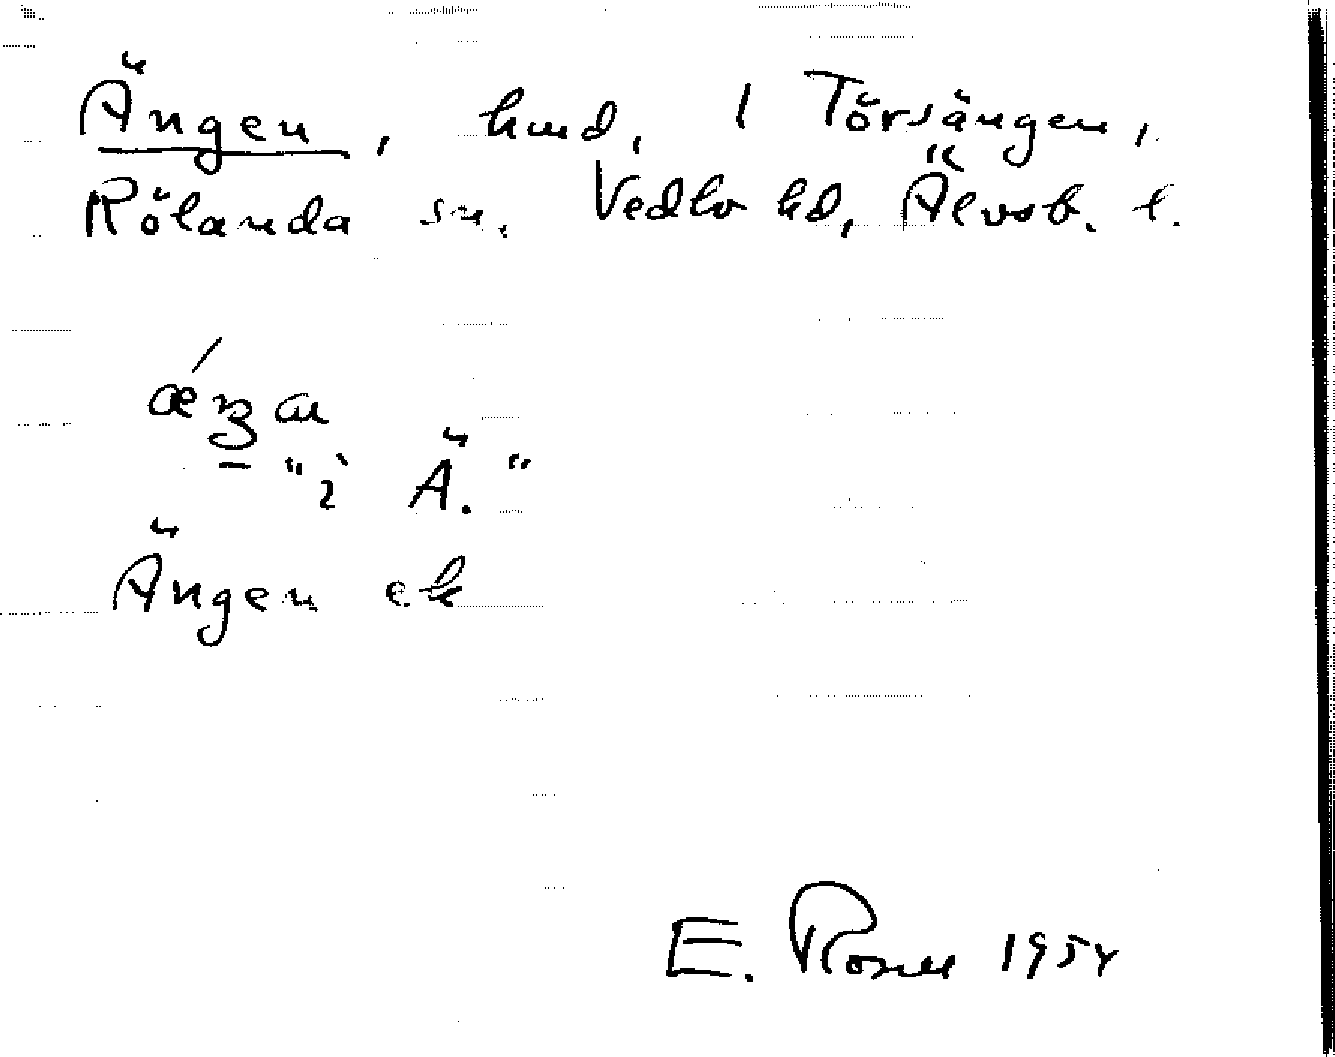 Ängen, hmd, 1 Törsängen,
Rölanda sn. Vedbo hd, Älvsb. l.
"i Ä."
Ängen ek
E. Rosell 1954